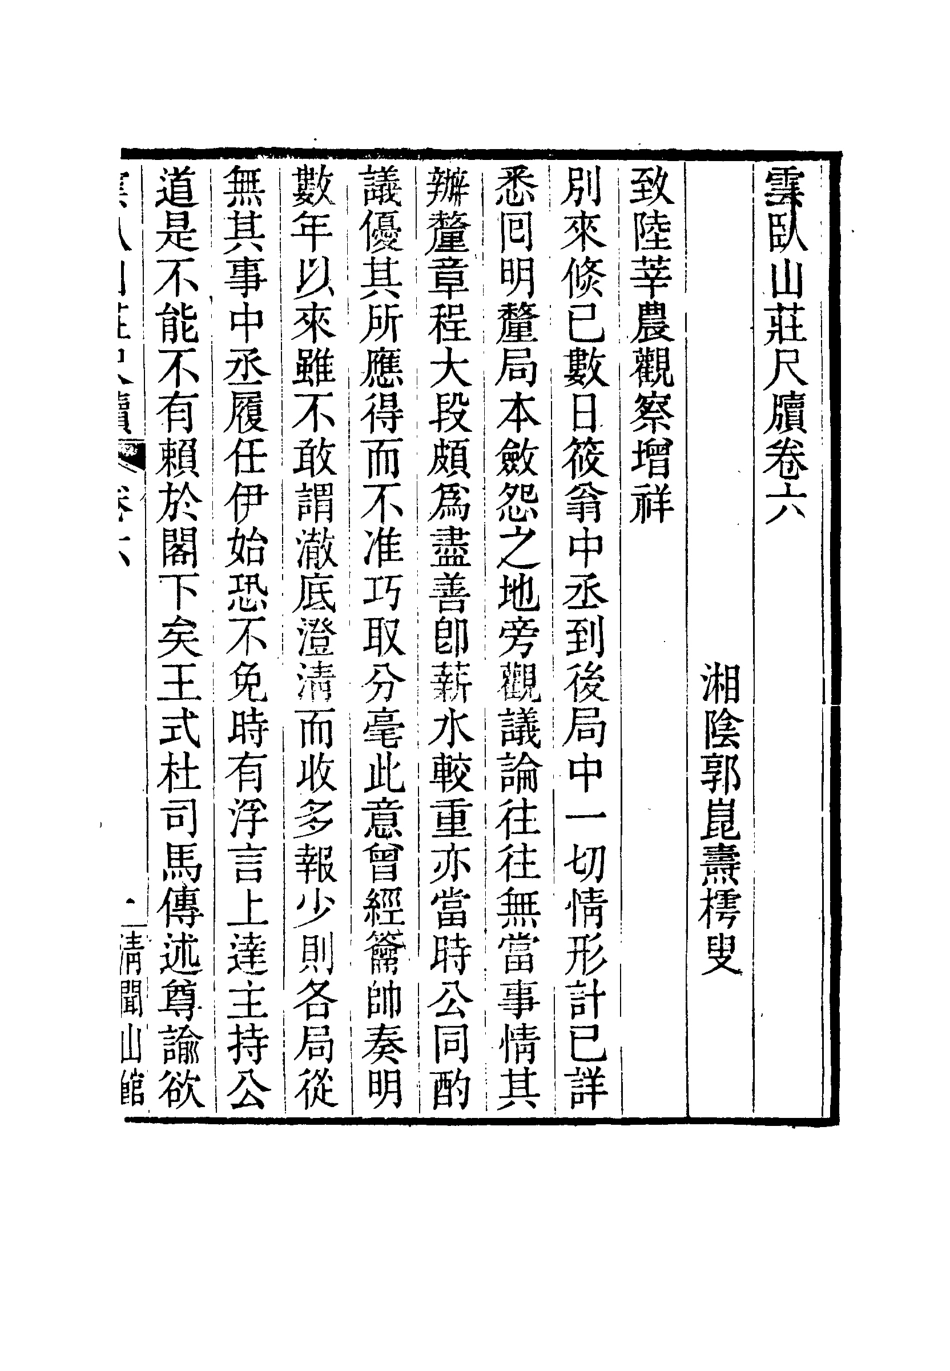 雲臥山莊尺牘卷六
湘陰郭崑燾樗叟
致陸莘農觀察增祥
別來倏已數日筱翁中丞到後局中一切情形計已詳
悉囘明釐局本斂怨之地旁觀議論往往無當事情其
辦釐章程大段頗爲盡善卽薪水較重亦當時公同酌
議優其所應得而不准巧取分毫此意曾經籥帥奏明
數年以來雖不敢謂澈底澄清而收多報少則各局從
無其事中丞履任伊始恐不免時有浮言上達主持公
道是不能不有賴於閣下矣王式杜司馬傳述尊諭欲
雲臥山莊尺牘 卷六 一 清聞山館